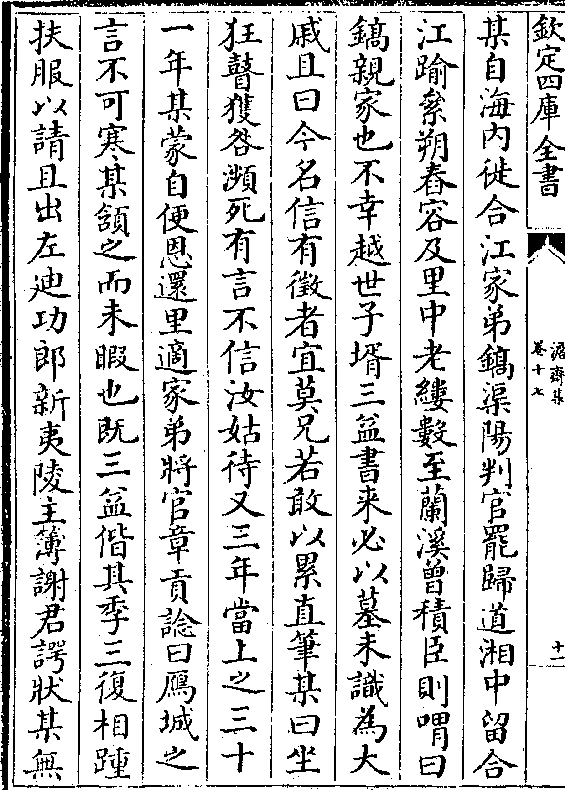 欽定四庫全書
澹齋集
卷十七
十一
某自海内徙合江家弟鎬渠陽判官罷歸道湘中留合
江踰祭朔舂容及里中老縷數至蘭溪曾積臣則喟曰
鎬親家也不幸越世子壻三益書来必以墓未識為大
戚且曰今名信有徵者宜莫兄若敢以累直筆某曰坐
狂瞽獲咎瀕死有言不信汝姑待又三年當上之三十
一年某蒙自便恩還里適家弟將官章貢諗曰鴈城之
言不可寒某頷之而未暇也既三益偕其季三復相踵
扶服以請且出左廸功郎新夷陵主簿謝君諤狀某無